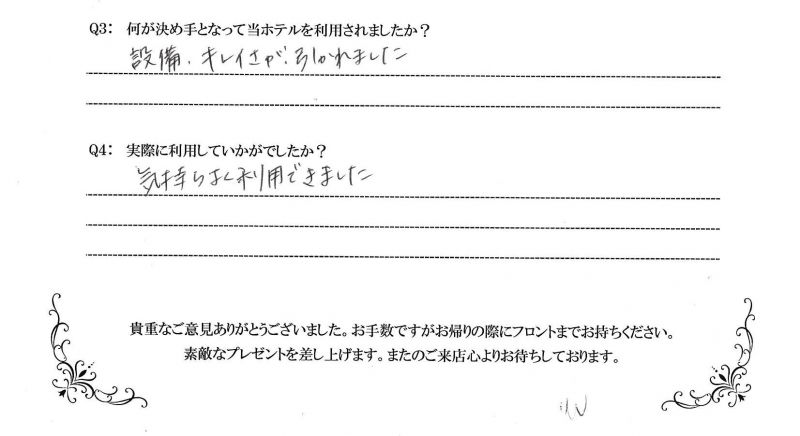 Q3: 何が決め手となって当ホテルを利用されましたか？
設備、キレイさが、引かれました
Q4: 実際に利用していかがでしたか？
気持ちよく利用できました
貴重なご意見ありがとうございました。お手数ですがお帰りの際にフロントまでお持ちください。
素敵なプレゼントを差し上げます。またのご来店心よりお待ちしております。